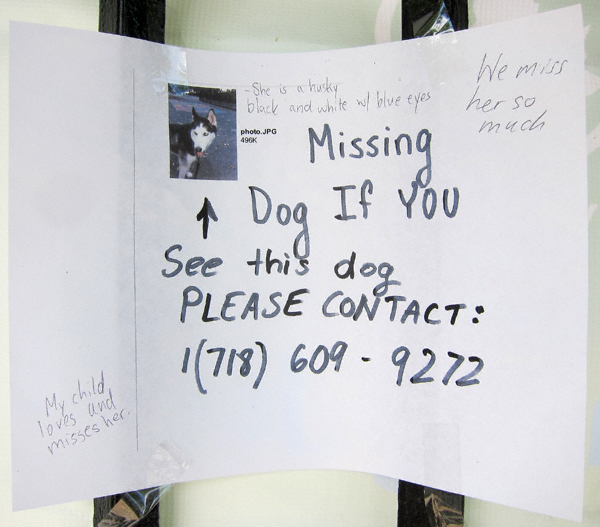 - She is a husky
black and white w/ blue eyes
We miss
her so
much
photo.JPG
496K
Missing
Dog If YOU
See this dog
PLEASE CONTACT:
1(718) 609 - 9272
My child
loves and
misses her.